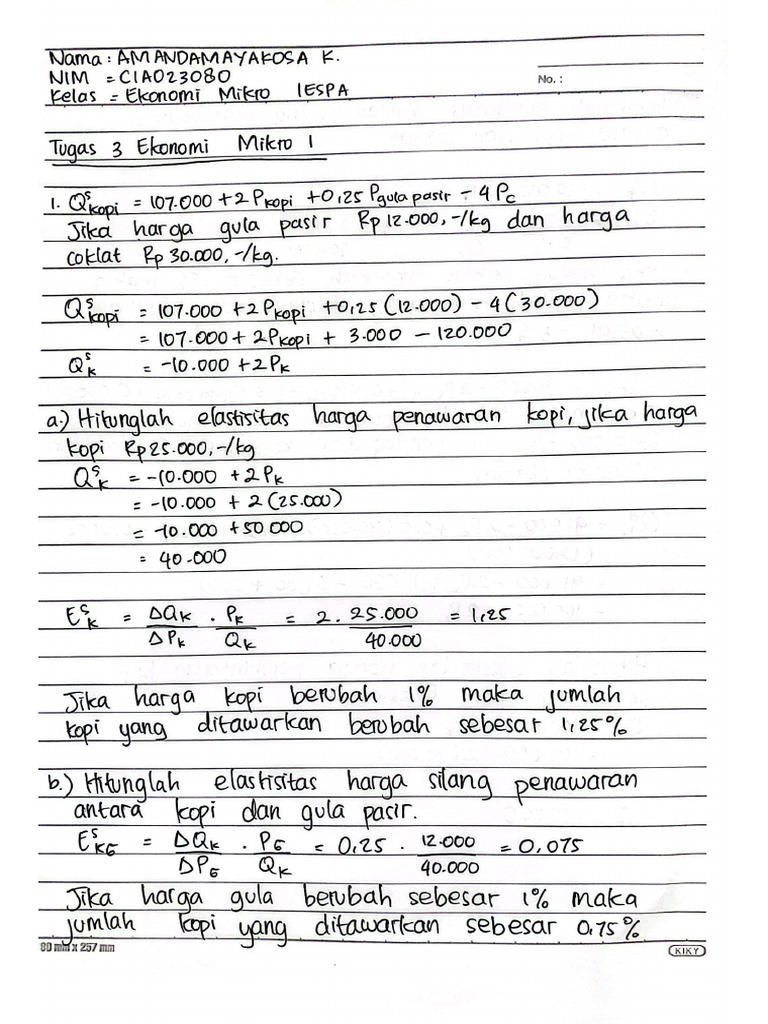 Nama : AMANDAMAYAKOSA K.
NIM = C1A023080
No. :
Kelas = Ekonomi Mikro IESPA
Tugas 3 Ekonomi Mikro 1
1. Qˢkopi = 107.000 + 2 Pkopi + 0,25 Pgula pasir - 4 Pc
Jika harga gula pasir Rp 12.000,-/kg dan harga
coklat Rp 30.000,-/kg.
Qˢkopi = 107.000 + 2 Pkopi + 0,25 (12.000) - 4 (30.000)
= 107.000 + 2 Pkopi + 3.000 - 120.000
Qˢk = -10.000 + 2 Pk
a.) Hitunglah elastisitas harga penawaran kopi, jika harga
kopi Rp 25.000,-/kg
Qˢk = -10.000 + 2 Pk
= -10.000 + 2 (25.000)
= -10.000 + 50 000
= 40.000
Eˢk = ΔQk/ΔPk . Pk/Qk = 2 . 25.000/40.000 = 1,25
Jika harga kopi berubah 1% maka jumlah
kopi yang ditawarkan berubah sebesar 1,25%
b.) Hitunglah elastisitas harga silang penawaran
antara kopi dan gula pasir.
EˢKG = ΔQk/ΔPG . PG/QK = 0,25 . 12.000/40.000 = 0,075
Jika harga gula berubah sebesar 1% maka
jumlah kopi yang ditawarkan sebesar 0,75%
80 mm x 257 mm
KIKY